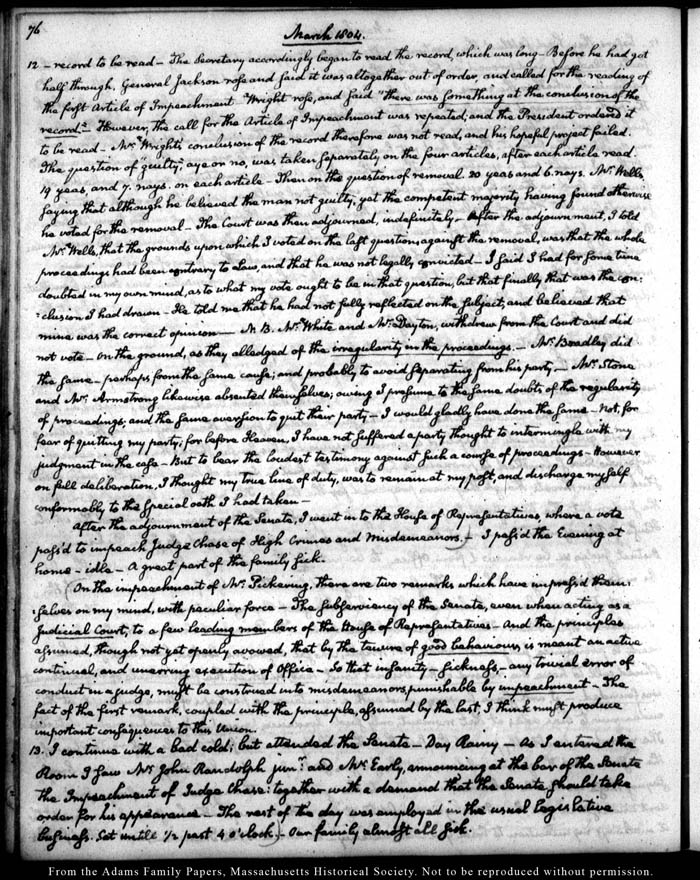 76
March 1804.
12 – record to be read – The Secretary accordingly began to read the record, which was long – Before he had got
half through, General Jackson rose and said it was altogether out of order, and called for the reading of
the first Article of Impeachment – Wright rose, and said "there was something at the conclusion of the
record." – However, the call for the Article of Impeachment was repeated; and the President ordered it
to be read – Mr. Wright's conclusion of the record therefore was not read, and his hopeful project failed.
The question of "guilty," aye or no, was taken separately, on the four articles, after each article read.
19 yeas, and 7. nays. on each article – Then on the question of removal 20 yeas and 6. nays. Mr. Wells,
saying that although he believed the man not guilty, yet the competent majority having found otherwise
he voted for the removal – The Court was then adjourned, indefinitely – After the adjournment, I told
Mr. Wells, that the grounds upon which I voted on the last question, against the removal, was that the whole
proceedings had been contrary to Law, and that he was not legally convicted – I said I had for some time
doubted in my own mind, as to what my vote ought to be in that question, but that finally that was the con:
:clusion I had drawn – He told me that he had not fully reflected on the subject; and believed that
mine was the correct opinion – N.B. Mr. White and Mr. Dayton, withdrew from the Court and did
not vote – on the ground, as they alledged of the irregularity in the proceedings. – Mr. Bradley did
the same – perhaps from the same cause; and probably to avoid separating from his party – Mr. Stone
and Mr. Armstrong likewise absented themselves; owing I presume to the same doubts of the regularity
of proceedings, and the same aversion to quit their party – I would gladly have done the same – Not, for
fear of quitting my party; for before Heaven, I have not suffered a party thought to intermingle with my
judgment in the case – But to bear the loudest testimony against such a course of proceedings – However
on full deliberation, I thought my true line of duty, was to remain at my post, and discharge myself
conformably to the special oath I had taken –
After the adjournment of the Senate, I went in to the House of Representatives, where a vote
pass'd to impeach Judge Chase of High Crimes and Misdemeanors) – I pass'd the Evening at
home – idle – A great part of the family sick.
(On the impeachment of Mr. Pickering, there are two remarks which have impress'd them:
:selves on my mind, with peculiar force – The subserviency of the Senate, even when acting as a
Judicial Court, to a few leading members of the House of Representatives – And the principle
assumed, though not yet openly avowed, that by the tenure of good behaviour, is meant an active
continual, and unerring execution of Office – So that insanity – sickness, – any trivial error of
conduct in a judge, must be construed into misdemeanors, punishable by impeachment – The
fact of the first remark, coupled with the principle, assumed by the last, I think must produce
important consequences to this Union.
13. I continue with a bad cold; but attended the Senate – Day Rainy – As I entered the
Room I saw Mr. John Randolph junr. and Mr. Early, announcing at the bar of the Senate
the Impeachment of Judge Chase: together with a demand that the Senate should take
order for his appearance – The rest of the day was employed in the usual legislative
business. Set untill 1/2 past 4 o'clock.) – Our family almost all sick.
From the Adams Family Papers, Massachusetts Historical Society. Not to be reproduced without permission.